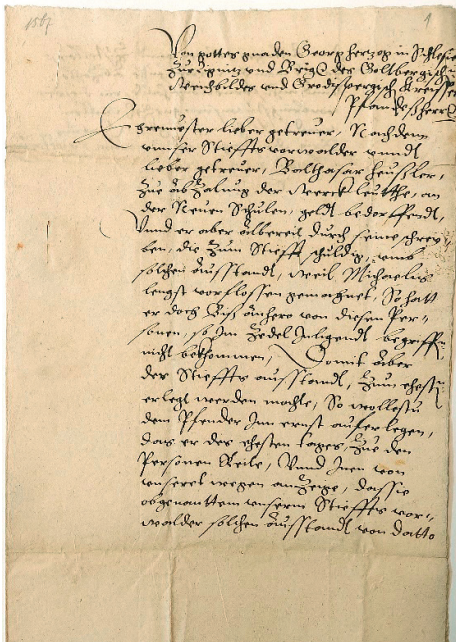 1567
1
Von gottes gnaden Georg hertzog in Schlesie
Zur Lignitz vnd Brigk des Goltbergisch
Weichbilder vnd Grodisbergisch Kreisses
Pfandesherr
Ehrenuester lieber getreuer, Nachdem
vnnser Stieffts vorwalder vnndt
lieber getreuer, Balthasar Heusslor,
Zue ab Zalung der Werck leutthe, an
der Neuen Schulen, geldt bedorffendt,
Vnnd er aber albereit durch seine schrey-
ben, die Zum Stiefft schuldig, vmb
solchen ausstandt, weil Michaelis
lengst vorflossen gemachnet, So hatt
er doch biss anhero von diesen Per-
sonen, so Im Zedel Inligendt begriff
nicht bekhommen, Domit aber
der Stieffts ausstandt, Zum ehest
erlegt werden mochte, So wollestu
dem Pfender Inn ernst aufferlegen,
das er des ehesten tages, Zue den
Personen Reite, Vnnd Inen von
vnseret wegen anZeige, das sie
obgenanttem vnserm Stieffts vor-
walder solchen ausstandt von datto